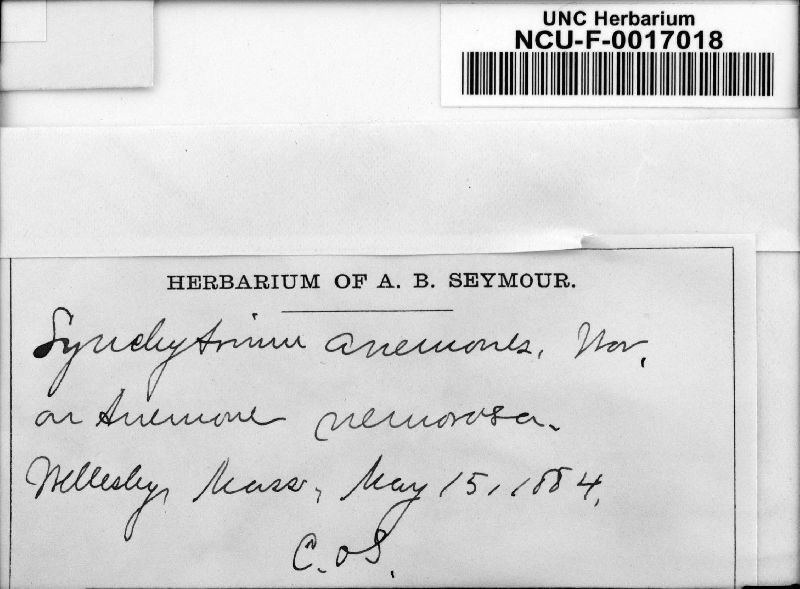 UNC Herbarium
NCU-F-0017018
HERBARIUM OF A. B. SEYMOUR.
Synchytrium anemones, Wor.
on Anemone nemorosa.
Wellesley, Mass., May 15, 1884.
C. O S.